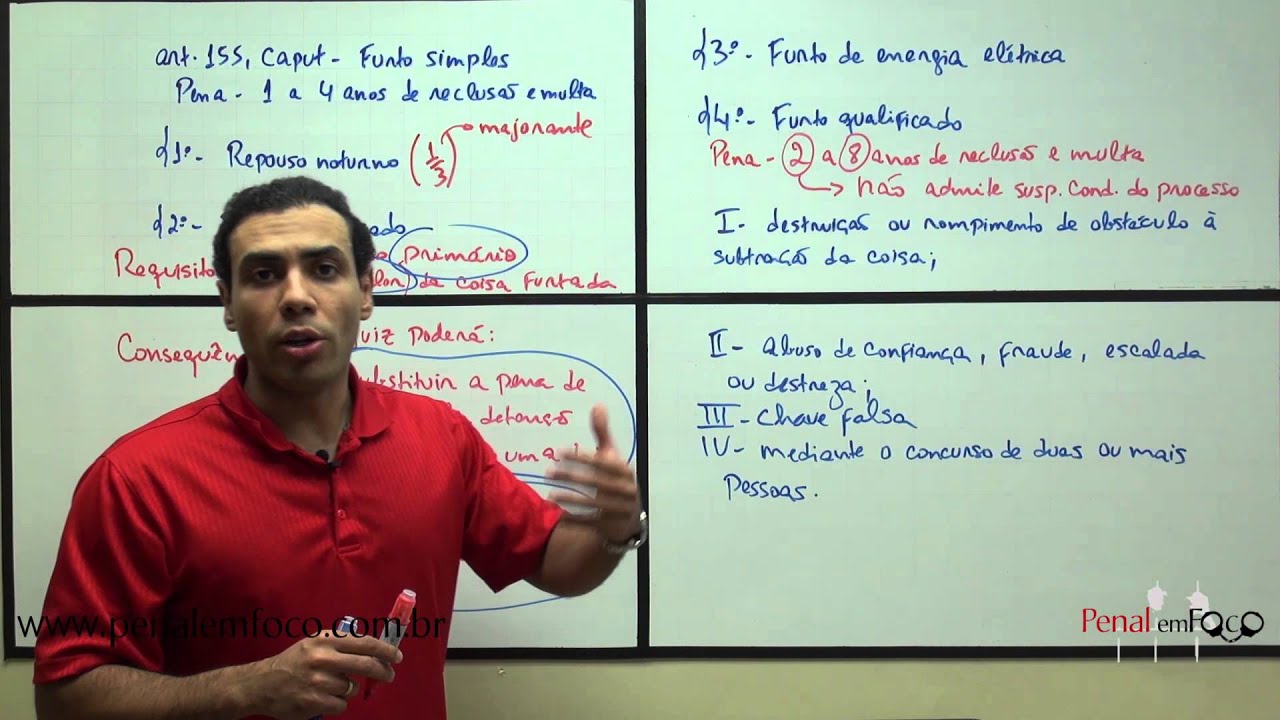 art. 155, Caput - Furto simples
Pena - 1 a 4 anos de reclusão e multa
§1º - Repouso noturno (1/3) majorante
§2º -
Requisito primário
da coisa furtada
Consequên Juiz poderá:
substituir a pena de
detenção
uma
§3º - Furto de energia elétrica
§4º - Furto qualificado
Pena - 2 a 8 anos de reclusão e multa
não admite susp. cond. do processo
I - destruição ou rompimento de obstáculo à
subtração da coisa;
II - abuso de confiança, fraude, escalada
ou destreza;
III - Chave falsa
IV - mediante o concurso de duas ou mais
Pessoas.
www.penalemfoco.com.br
Penal emFoco